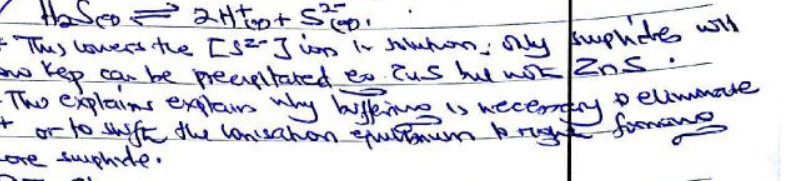 H2S(g) ⇌ 2H+(aq) + S2-(aq).
This lowers the [S2-] ion in solution; only sulphides with
low Ksp can be precipitated eg CuS but not ZnS.
This explains explains why buffering is necessary to eliminate
+ or to shift the ionisation equilibrium to right forming
ore sulphide.